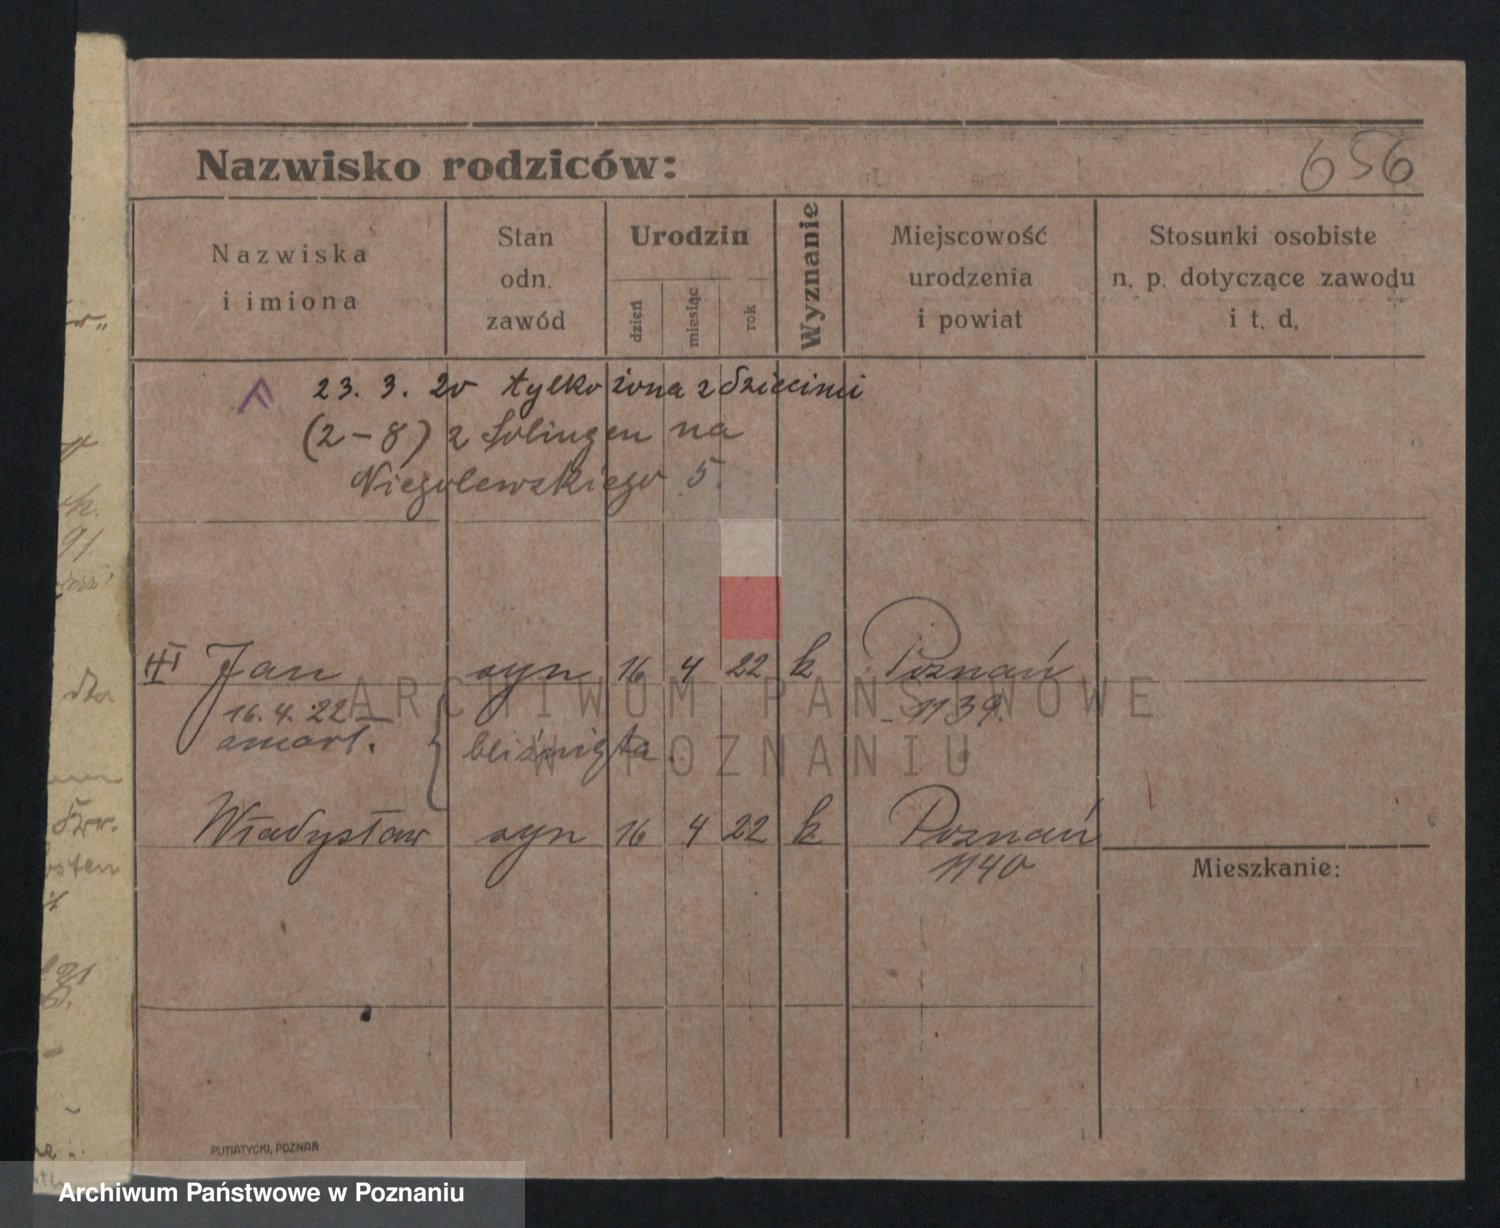 Nazwisko rodziców:
656
Nazwiska
i imiona
Stan
odn.
zawód
Urodzin
dzień
miesiąc
rok
Wyznanie
Miejscowość
urodzenia
i powiat
Stosunki osobiste
n. p. dotyczące zawodu
i t. d.
23. 3. 20 tylko żona z dziećmi
(2-8) z Solingen na
Niegolewskiego 5.
Jan syn 16 4 22 k Poznań
16.4.22 1139.
zmarł.
bliźnięta.
Władysław syn 16 4 22 k Poznań
1140
Mieszkanie:
dla
ARCHIWUM PAŃSTWOWE
W POZNANIU
PUTIATYCKI, POZNAŃ
Archiwum Państwowe w Poznaniu